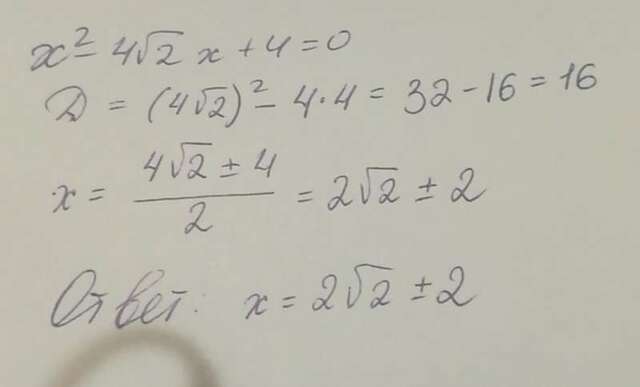 x² - 4√2 x + 4 = 0
D = (4√2)² - 4·4 = 32 - 16 = 16
x = (4√2 ± 4)/2 = 2√2 ± 2
Ответ: x = 2√2 ± 2